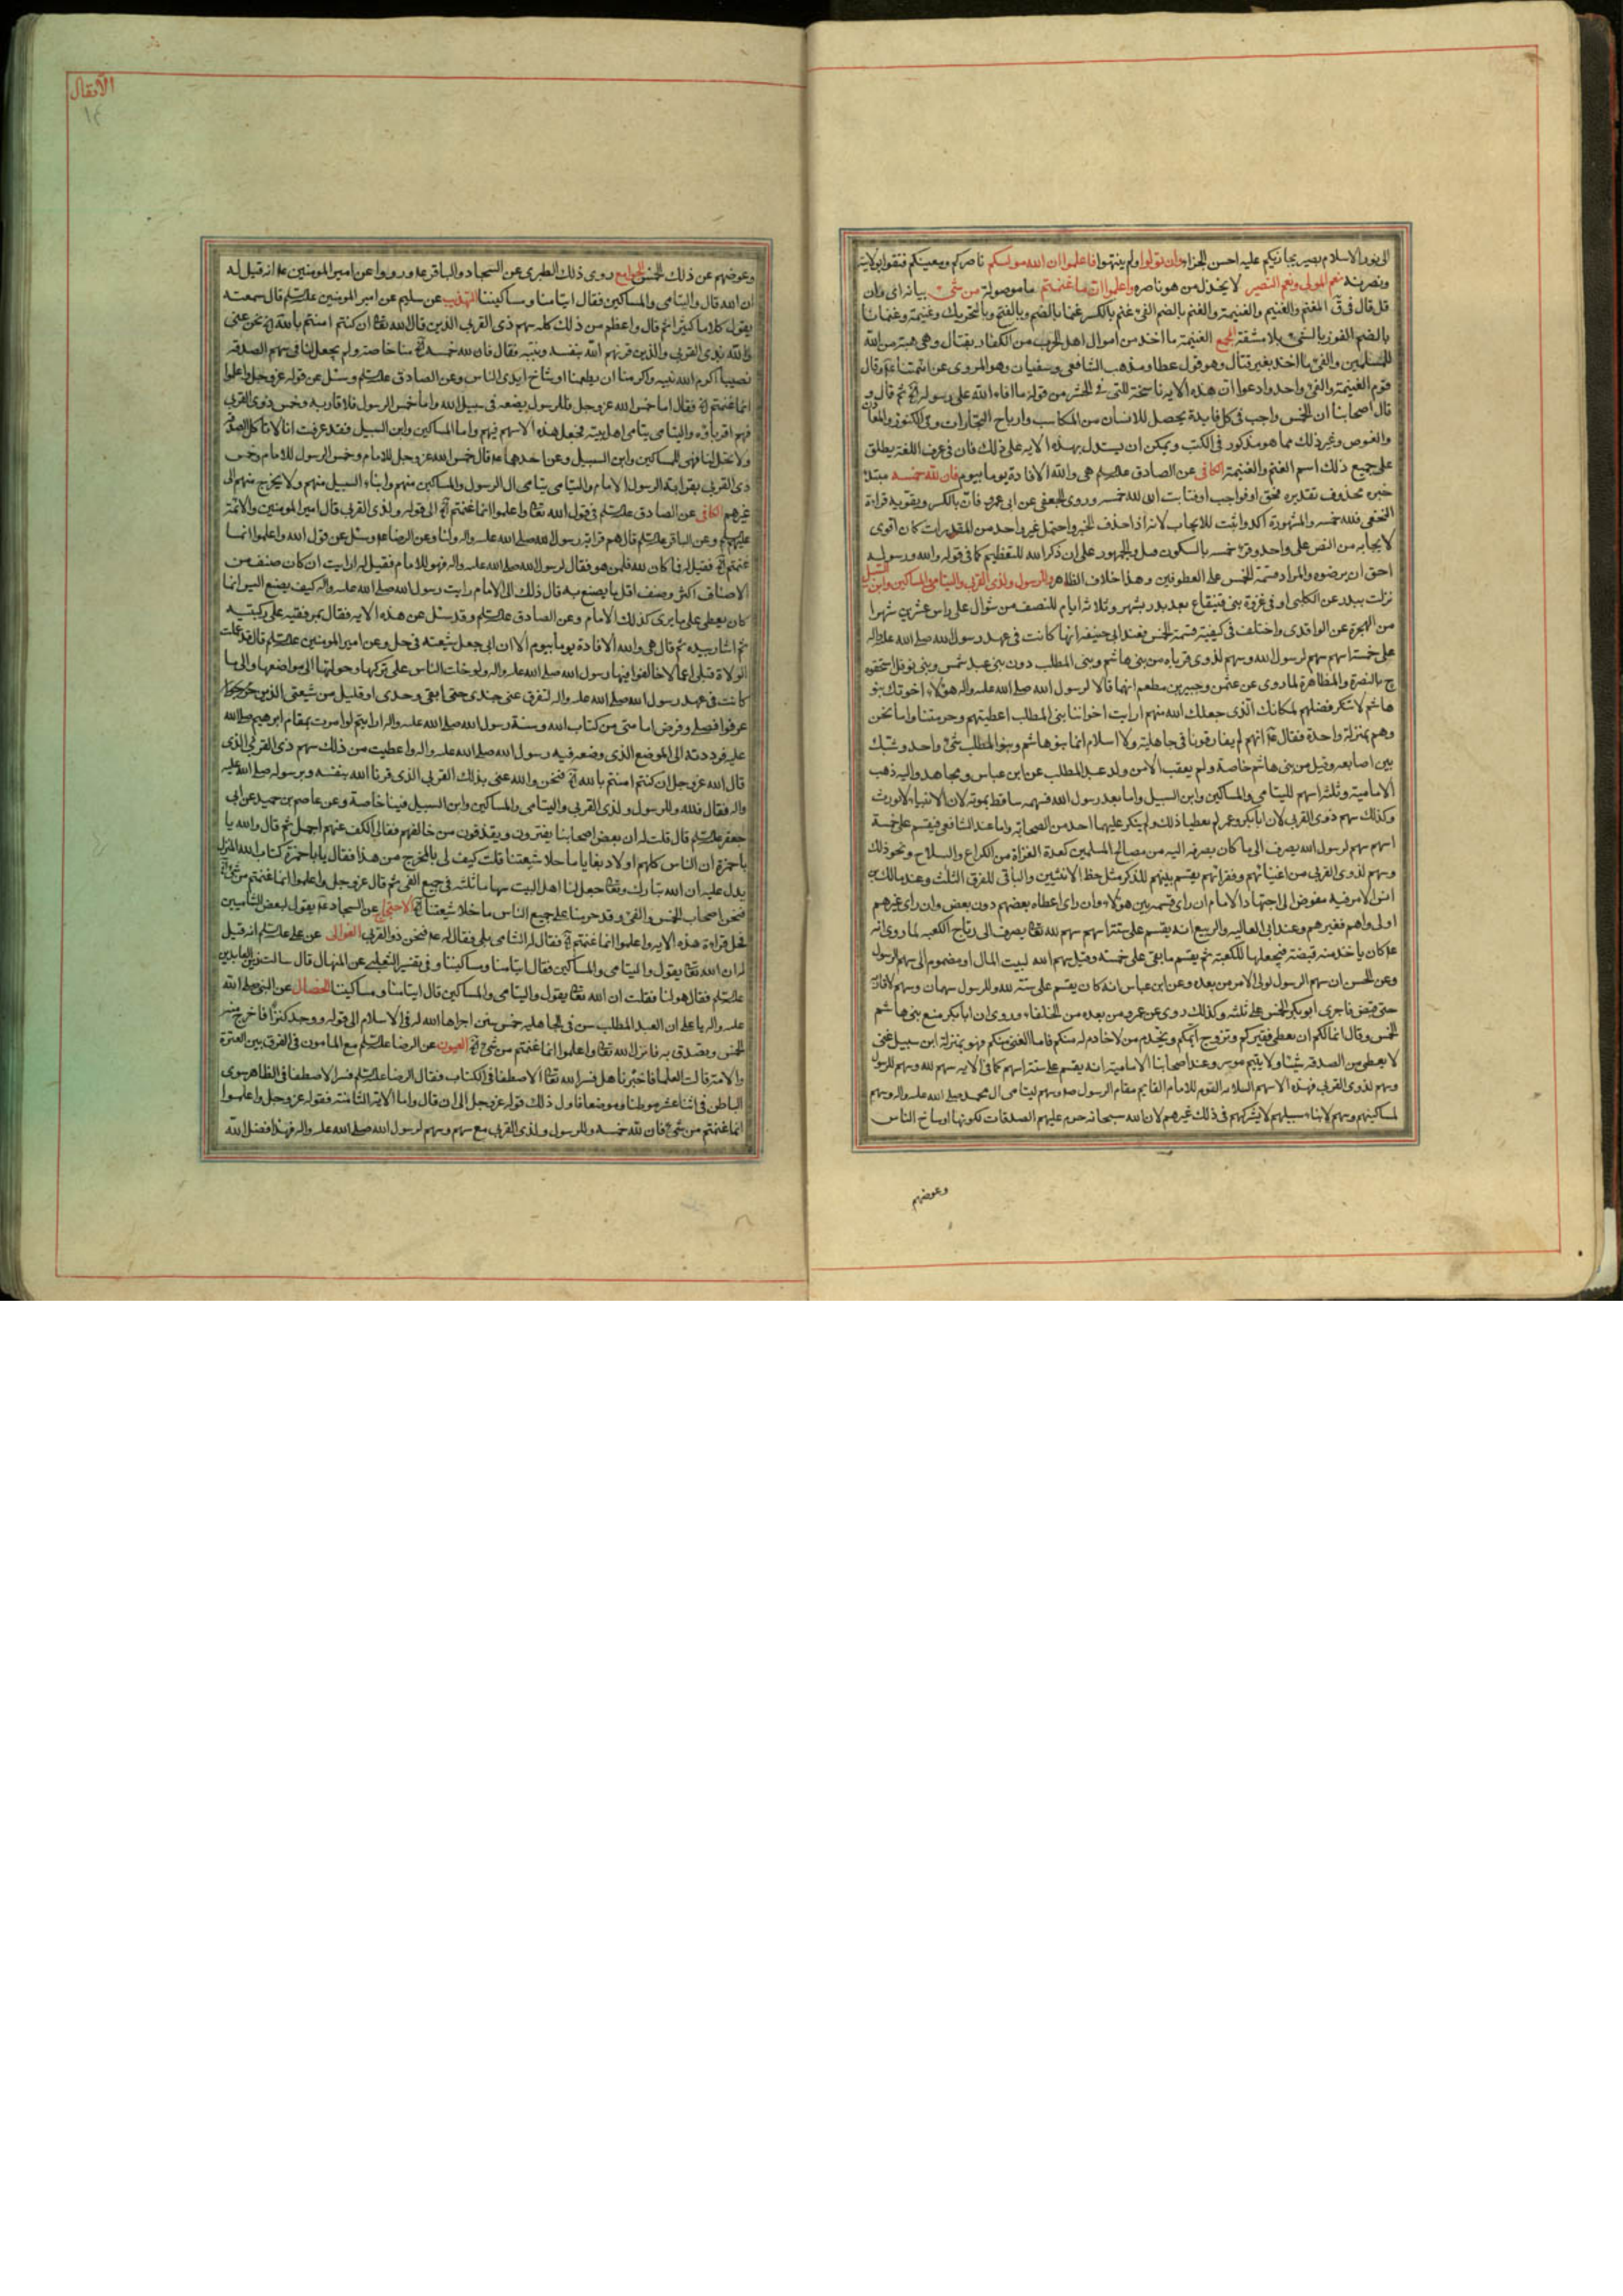 الى نور الاسلام بصير يجازيكم عليه احسن الجزاء وان تولوا ولم ينتهوا فاعلموا ان الله موليكم ناصركم ومعينكم فثقوا بولايته
ونصرته نعم المولى ونعم النصير لا يخذل من هو ناصره واعلموا ان ما غنمتم ما موصولة من شئ بيانه اى وان
قل قال فى ق المغنم والغنيم والغنيمة والغنم بالضم الفئ غنم بالكسر غنما بالضم وبالفتح وبالتحريك وغنيمة وغنمانا
بالضم الفوز بالشئ بلا مشقة المجمع الغنيمة ما اخذ من اموال اهل الحرب من الكفار بقتال وهى هبة من الله
للمسلمين والفئ ما اخذ بغير قتال وهو قول عطا ومذهب الشافعى وسفيان وهو المروى عن ائمتنا ع وقال
قوم الغنيمة والفئ واحد وادعوا ان هذه الاية ناسخة للتى فى الحشر من قوله ما افاء الله على رسوله ثم قال و
قال اصحابنا ان الخمس واجب فى كل فايدة يحصل للانسان من المكاسب وارباح التجارات وفى الكنوز والمعادن
والغوص وغير ذلك مما هو مذكور فى الكتب ويمكن ان يستدل بهذه الاية على ذلك فان فى عرف اللغة يطلق
على جميع ذلك اسم الغنم والغنيمة الكافى عن الصادق عليه السلم هى والله الافادة يوما بيوم فان لله خمسه مبتدا
خبره محذوف تقديره فحق او فواجب او فثابت ان لله خمسه وروى الجعفى عن ابى عمرو فان بالكسر ويقويه قراءة
النخعى فلله خمسه والمشهورة آكد واثبت للايجاب لانه اذا حذف الخبر واحتمل غير واحد من المقدرات كان اقوى
لايجابه من النص على واحد وقرئ خمسه بالسكون والجمهور على ان ذكر الله للتعظيم كما فى قوله والله ورسوله
احق ان يرضوه والمراد قسمة الخمس على المعطوفين وهذا خلاف الظاهر وللرسول ولذى القربى واليتامى والمساكين وابن السبيل
نزلت ببدر عن الكلبى او فى غزوة بنى قينقاع بعد بدر بشهر وثلاثة ايام للنصف من شوال على راس عشرين شهرا
من الهجرة عن الواقدى واختلف فى كيفية قسمة الخمس فعند ابى حنيفة انها كانت فى عهد رسول الله صلى الله عليه واله
على خمسة اسهم سهم لرسول الله وسهم لذوى قرباه من بنى هاشم وبنى المطلب دون بنى عبد شمس وبنى نوفل استحقوه
ح بالنصرة والمظاهرة لما روى عن عثمن وجبير بن مطعم انهما قالا لرسول الله صلى الله عليه واله هؤلاء اخوتك بنو
هاشم لا ننكر فضلهم لمكانك الذى جعلك الله منهم ارايت اخواننا بنى المطلب اعطيتهم وحرمتنا وانما نحن
وهم بمنزلة واحدة فقال ع انهم لم يفارقونا فى جاهلية ولا اسلام انما بنو هاشم وبنو المطلب شئ واحد وشبك
بين اصابعه وقيل من بنى هاشم خاصة ولم يعقب الا من ولد عبد المطلب عن ابن عباس ومجاهد واليه ذهب
الامامية وثلثة اسهم لليتامى والمساكين وابن السبيل واما بعد رسول الله فسهمه ساقط بموته لان الانبياء لا تورث
وكذلك سهم ذوى القربى لان ابا بكر وعمر لم يعطيا ذلك ولم ينكر عليهما احد من الصحابة واما عند الشافعى فيقسم على خمسة
اسهم سهم لرسول الله يصرف الى ما كان يصرفه اليه من مصالح المسلمين كعدة الغزاة من الكراع والسلاح ونحو ذلك
وسهم لذوى القربى من اغنيائهم وفقرائهم يقسم بينهم للذكر مثل حظ الانثيين والباقى للفرق الثلث وعند مالك بن
انس الامر فيه مفوض الى اجتهاد الامام ان راى قسمه بين هؤلاء وان راى اعطاه بعضهم دون بعض وان راى غيرهم
اولى واهم فغيرهم وعند ابى العاليه والربيع انه يقسم على ستة اسهم سهم لله تعالى يصرف الى رتاج الكعبه لما روى انه
ع كان ياخذ منه قبضة فيجعلها للكعبة ثم يقسم ما بقى على خمسة وقيل سهم الله لبيت المال او مضموم الى سهم الرسول
وعن الحسن ان سهم الرسول لولى الامر من بعده وعن ابن عباس انه كان يقسم على ستة لله وللرسول سهمان وسهم لاقاربه
حتى قبض فاجرى ابو بكر الخمس على ثلثة وكذلك روى عن عمر ومن بعده من الخلفاء وروى ان ابا بكر منع بنى هاشم
الخمس وقال انما لكم ان يعطى فقيركم وتزوج ايمكم ويخدم من لا خادم له منكم فاما الغنى منكم فهو بمنزلة ابن سبيل غنى
لا يعطى من الصدقة شيئا ولا يتيم موسر وعند اصحابنا الامامية انه يقسم على ستة اسهم كما فى الاية سهم لله وسهم للرسول
وسهم لذوى القربى فهذه الاسهم الثلاثة اليوم للامام القايم مقام الرسول ص وسهم ليتامى ال محمد صلى الله عليه واله وسهم
لمساكينهم وسهم لابناء سبيلهم لا يشركهم فى ذلك غيرهم لان الله سبحانه حرم عليهم الصدقات لكونها اوساخ الناس
وعوضهم
الانفال
١٤
وعوضهم عن ذلك الخمس الجوامع روى ذلك الطبرى عن السجاد والباقر ع ورووا عن امير المومنين ع انه قيل له
ان الله قال واليتامى والمساكين فقال ايتامنا ومساكيننا التهذيب عن سليم عن امير المومنين عليه السلم قال سمعته
يقول كلاما كثيرا ثم قال واعظم من ذلك كله سهم ذى القربى الذين قال الله تعالى ان كنتم امنتم بالله نحن عنى
والله بذى القربى والذين قرنهم الله بنفسه ونبيه فقال فان لله خمسه منا خاصة ولم يجعل لنا فى سهم الصدقة
نصيبا اكرم الله نبيه واكرمنا ان يطعمنا اوساخ ايدى الناس وعن الصادق عليه السلم وسئل عن قوله عز وجل واعلموا
انما غنمتم فقال اما خمس الله عز وجل فللرسول يضعه فى سبيل الله واما خمس الرسول فلاقاربه وخمس ذوى القربى
فهم اقرباؤه واليتامى يتامى اهل بيته فجعل هذه الاسهم فيهم واما المساكين وابن السبيل فقد عرفت انا لا ناكل الصدقة
ولا تحل لنا فهى للمساكين وابن السبيل وعن احدهما ع قال خمس الله عز وجل للامام وخمس الرسول للامام وخمس
ذى القربى بقرابة الرسول الامام واليتامى يتامى ال الرسول والمساكين منهم وابناء السبيل منهم ولا يخرج منهم الى
غيرهم الكافى عن الصادق عليه السلم فى قول الله تعالى واعلموا انما غنمتم الى قوله ولذى القربى قال امير المومنين والائمة
عليهم السلم وعن الباقر عليه السلم قال هم قرابة رسول الله صلى الله عليه واله ولنا وعن الرضا ع وسئل عن قول الله واعلموا انما
غنمتم فقيل له فما كان لله فلمن هو فقال لرسول الله صلى الله عليه واله فهو للامام فقيل له ارايت ان كان صنف من
الاصناف اكثر وصنف اقل ما يصنع به قال ذلك الى الامام ارايت رسول الله صلى الله عليه واله كيف يصنع اليس انما
كان يعطى على ما يرى كذلك الامام وعن الصادق عليه السلم وقد سئل عن هذه الاية فقال بمرفقيه على ركبتيه
ثم اشار بيده ثم قال هى والله الافادة يوما بيوم الا ان ابى جعل شيعته فى حل وعن امير المومنين عليه السلم قال قد عملت
الولاة قبلى اعمالا خالفوا فيها رسول الله صلى الله عليه واله ولو حملت الناس على تركها وحولتها الى مواضعها والى ما
كانت فى عهد رسول الله صلى الله عليه واله لتفرق عنى جندى حتى ابقى وحدى او قليل من شيعتى الذين
عرفوا فضلى وفرض امامتى من كتاب الله وسنة رسول الله صلى الله عليه واله ارايتم لو امرت بمقام ابرهيم صلى الله
عليه فرددته الى الموضع الذى وضعه فيه رسول الله صلى الله عليه واله واعطيت من ذلك سهم ذى القربى الذى
قال الله عز وجل ان كنتم امنتم بالله فنحن والله عنى بذلك القربى الذى قرنا الله بنفسه وبرسوله صلى الله عليه
واله فقال فلله وللرسول ولذى القربى واليتامى والمساكين وابن السبيل فينا خاصة وعن عاصم بن حميد عن ابى
جعفر عليه السلم قال قلت له ان بعض اصحابنا يفترون ويقذفون من خالفهم فقال الكف عنهم اجمل ثم قال والله يا
با حمزة ان الناس كلهم اولاد بغايا ما خلا شيعتنا قلت كيف لى بالمخرج من هذا فقال يا با حمزة كتاب الله المنزل
يدل عليه ان الله تبارك وتعالى جعل لنا اهل البيت سهاما ثلثة فى جميع الفئ ثم قال عز وجل واعلموا انما غنمتم من شئ
فنحن اصحاب الخمس والفئ وقد حرمنا على جميع الناس ما خلا شيعتنا الاحتجاج عن السجاد ع يقول لبعض الشاميين
هل قراءة هذه الاية واعلموا انما غنمتم فقال له الشامى بلى فقال له ع فنحن ذو القربى العوالى عن على عليه السلم انه قيل
له ان الله تعالى يقول واليتامى والمساكين فقال ايتامنا ومساكيننا وفى تفسير الثعلبى عن المنهال قال سالت زين العابدين
عليه السلم فقال هو لنا فقلت ان الله تعالى يقول واليتامى والمساكين قال ايتامنا ومساكيننا الخصال عن النبى صلى الله
عليه واله يا على ان العبد المطلب سن فى الجاهليه خمس سنن اجراها الله له فى الاسلام الى قوله ووجد كنزا فاخرج منه
الخمس وتصدق به فانزل الله تعالى واعلموا انما غنمتم من شئ العيون عن الرضا عليه السلم مع المامون فى الفرق بين العترة
والامة قالت العلما فاخبرنا هل فسر الله تعالى الاصطفا فى الكتاب فقال الرضا عليه السلم فسر الاصطفا فى الظاهر سوى
الباطن فى اثنا عشر موطنا وموضعا فاول ذلك قوله عز وجل الى ان قال واما الاية الثامنة فقوله عز وجل واعلموا
انما غنمتم من شئ فان لله خمسه وللرسول ولذى القربى مع سهم وسهم لرسول الله صلى الله عليه واله فهذا فضل الله